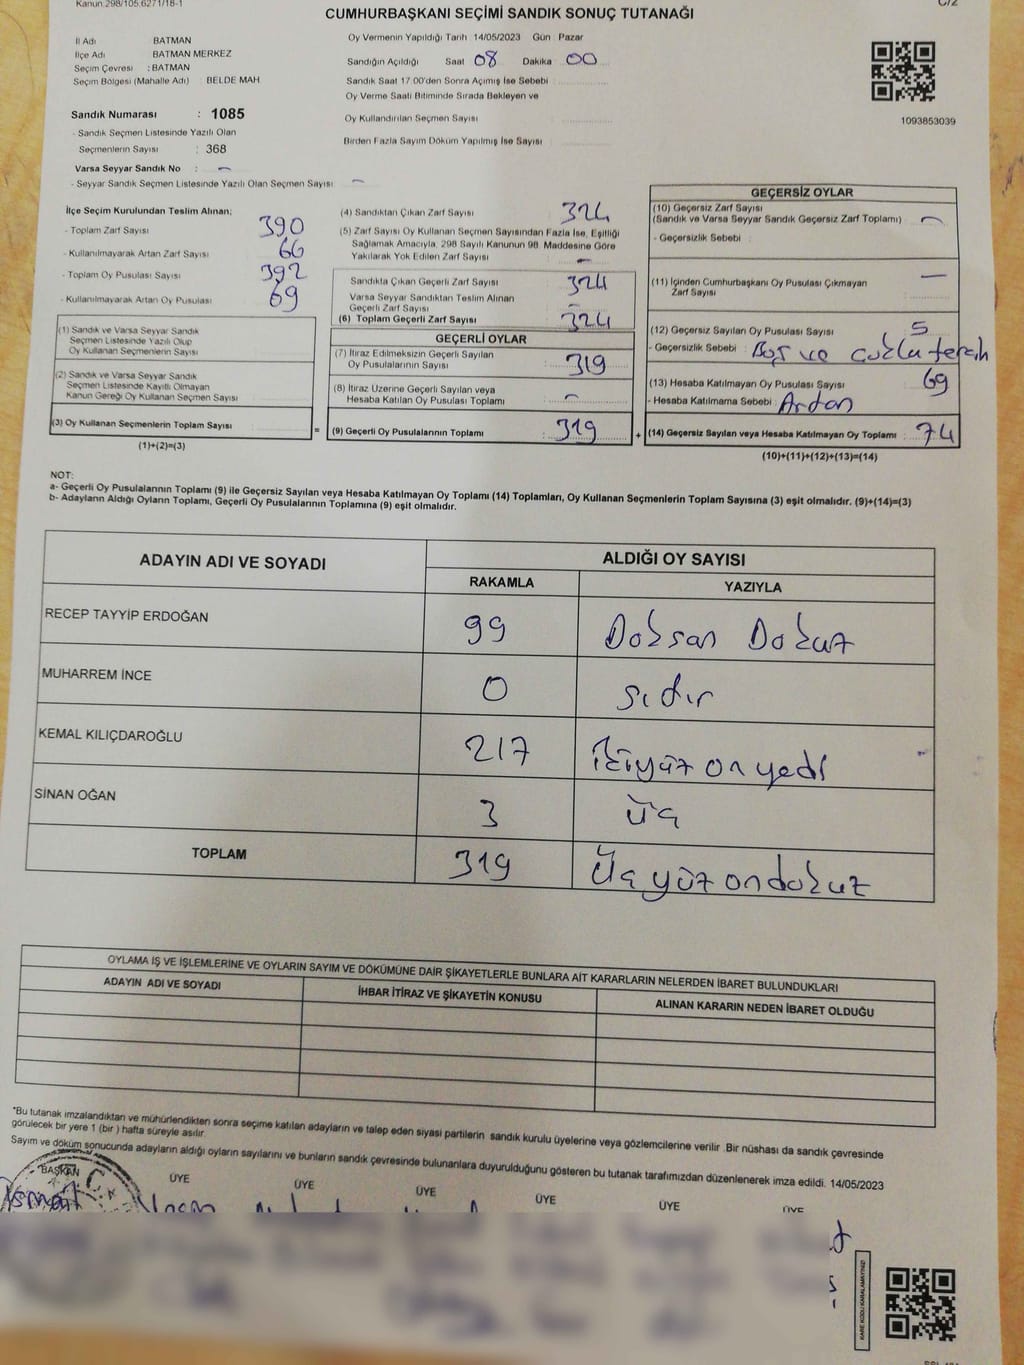 Kanun.298/105.6271/18-1
C/2
CUMHURBAŞKANI SEÇİMİ SANDIK SONUÇ TUTANAĞI
İl Adı BATMAN
İlçe Adı BATMAN MERKEZ
Seçim Çevresi : BATMAN
Seçim Bölgesi (Mahalle Adı) : BELDE MAH
Sandık Numarası : 1085
- Sandık Seçmen Listesinde Yazılı Olan
Seçmenlerin Sayısı : 368
Varsa Seyyar Sandık No : -
- Seyyar Sandık Seçmen Listesinde Yazılı Olan Seçmen Sayısı : -
Oy Vermenin Yapıldığı Tarih 14/05/2023 Gün : Pazar
Sandığın Açıldığı Saat 08 Dakika 00
Sandık Saat 17.00'den Sonra Açımış İse Sebebi
Oy Verme Saati Bitiminde Sırada Bekleyen ve
Oy Kullandırılan Seçmen Sayısı
Birden Fazla Sayım Döküm Yapılmış İse Sayısı
1093853039
İlçe Seçim Kurulundan Teslim Alınan;
- Toplam Zarf Sayısı 390
- Kullanılmayarak Artan Zarf Sayısı 66
- Toplam Oy Pusulası Sayısı 392
- Kullanılmayarak Artan Oy Pusulası 69
(1) Sandık ve Varsa Seyyar Sandık
Seçmen Listesinde Yazılı Olup
Oy Kullanan Seçmenlerin Sayısı
(2) Sandık ve Varsa Seyyar Sandık
Seçmen Listesinde Kayıtlı Olmayan
Kanun Gereği Oy Kullanan Seçmen Sayısı
(3) Oy Kullanan Seçmenlerin Toplam Sayısı =
(1)+(2)=(3)
(4) Sandıktan Çıkan Zarf Sayısı 324
(5) Zarf Sayısı Oy Kullanan Seçmen Sayısından Fazla İse, Eşitliği
Sağlamak Amacıyla, 298 Sayılı Kanunun 98. Maddesine Göre
Yakılarak Yok Edilen Zarf Sayısı -
Sandıkta Çıkan Geçerli Zarf Sayısı : 324
Varsa Seyyar Sandıktan Teslim Alınan
Geçerli Zarf Sayısı : -
(6) Toplam Geçerli Zarf Sayısı : 324
GEÇERLİ OYLAR
(7) İtiraz Edilmeksizin Geçerli Sayılan
Oy Pusulalarının Sayısı : 319
(8) İtiraz Üzerine Geçerli Sayılan veya
Hesaba Katılan Oy Pusulası Toplamı : -
(9) Geçerli Oy Pusulalarının Toplamı : 319 +
GEÇERSİZ OYLAR
(10) Geçersiz Zarf Sayısı
(Sandık ve Varsa Seyyar Sandık Geçersiz Zarf Toplamı) : -
- Geçersizlik Sebebi :
(11) İçinden Cumhurbaşkanı Oy Pusulası Çıkmayan
Zarf Sayısı : -
(12) Geçersiz Sayılan Oy Pusulası Sayısı : 5
- Geçersizlik Sebebi : Boş ve çoklu tercih
(13) Hesaba Katılmayan Oy Pusulası Sayısı 69
- Hesaba Katılmama Sebebi : Artan
(14) Geçersiz Sayılan veya Hesaba Katılmayan Oy Toplamı : 74
(10)+(11)+(12)+(13)=(14)
NOT:
a- Geçerli Oy Pusulalarının Toplamı (9) ile Geçersiz Sayılan veya Hesaba Katılmayan Oy Toplamı (14) Toplamları, Oy Kullanan Seçmenlerin Toplam Sayısına (3) eşit olmalıdır. (9)+(14)=(3)
b- Adayların Aldığı Oyların Toplamı, Geçerli Oy Pusulalarının Toplamına (9) eşit olmalıdır.
ADAYIN ADI VE SOYADI
ALDIĞI OY SAYISI
RAKAMLA YAZIYLA
RECEP TAYYİP ERDOĞAN 99 Doksan Dokuz
MUHARREM İNCE 0 sıfır
KEMAL KILIÇDAROĞLU 217 İkiyüz on yedi
SİNAN OĞAN 3 üç
TOPLAM 319 Üç yüz on dokuz
OYLAMA İŞ VE İŞLEMLERİNE VE OYLARIN SAYIM VE DÖKÜMÜNE DAİR ŞİKAYETLERLE BUNLARA AİT KARARLARIN NELERDEN İBARET BULUNDUKLARI
ADAYIN ADI VE SOYADI İHBAR İTİRAZ VE ŞİKAYETİN KONUSU ALINAN KARARIN NEDEN İBARET OLDUĞU
*Bu tutanak imzalandıktan ve mühürlendikten sonra seçime katılan adayların ve talep eden siyasi partilerin sandık kurulu üyelerine veya gözlemcilerine verilir. Bir nüshası da sandık çevresinde
görülecek bir yere 1 (bir ) hafta süreyle asılır.
Sayım ve döküm sonucunda adayların aldığı oyların sayılarını ve bunların sandık çevresinde bulunanlara duyurulduğunu gösteren bu tutanak tarafımızdan düzenlenerek imza edildi. 14/05/2023
BAŞKAN ÜYE ÜYE ÜYE ÜYE ÜYE ÜYE
KARE KODU KARALAMAYINIZ!